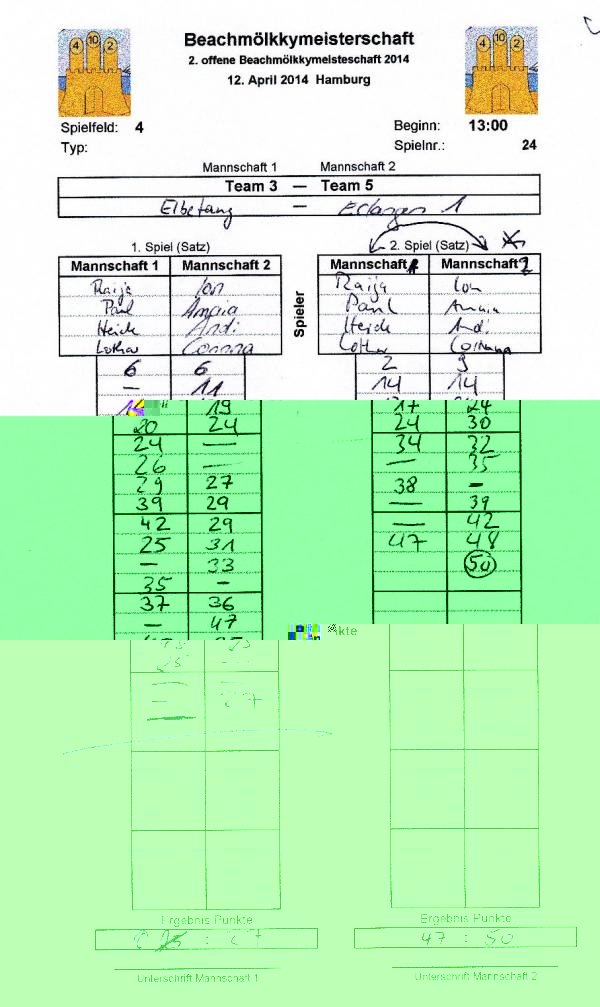 4 10 2
4 10 2
Beachmölkkymeisterschaft
2. offene Beachmölkkymeisteschaft 2014
12. April 2014 Hamburg
Spielfeld: 4
Beginn: 13:00
Typ:
Spielnr.: 24
Mannschaft 1 Mannschaft 2
Team 3 — Team 5
— Erlangen 1
1. Spiel (Satz)
2. Spiel (Satz)
Mannschaft 1 Mannschaft 2
Mannschaft Mannschaft
Spieler
Raija Ion
Raija Ion
Paul Amaia
Paul Amaia
Heide Andi
Heide Andi
Lothar Corinna
Lothar Corinna
6 6
2 9
— 11
14 14
19
17 24
20 24
24 30
24 —
34 32
26 —
— 35
29 27
38 -
39 29
— 39
42 29
— 42
25 31
47 48
— 33
50
35 -
37 36
— 47
25
— 27
Ergebnis Punkte
Ergebnis Punkte
: 27
47 : 50
Unterschrift Mannschaft 1
Unterschrift Mannschaft 2